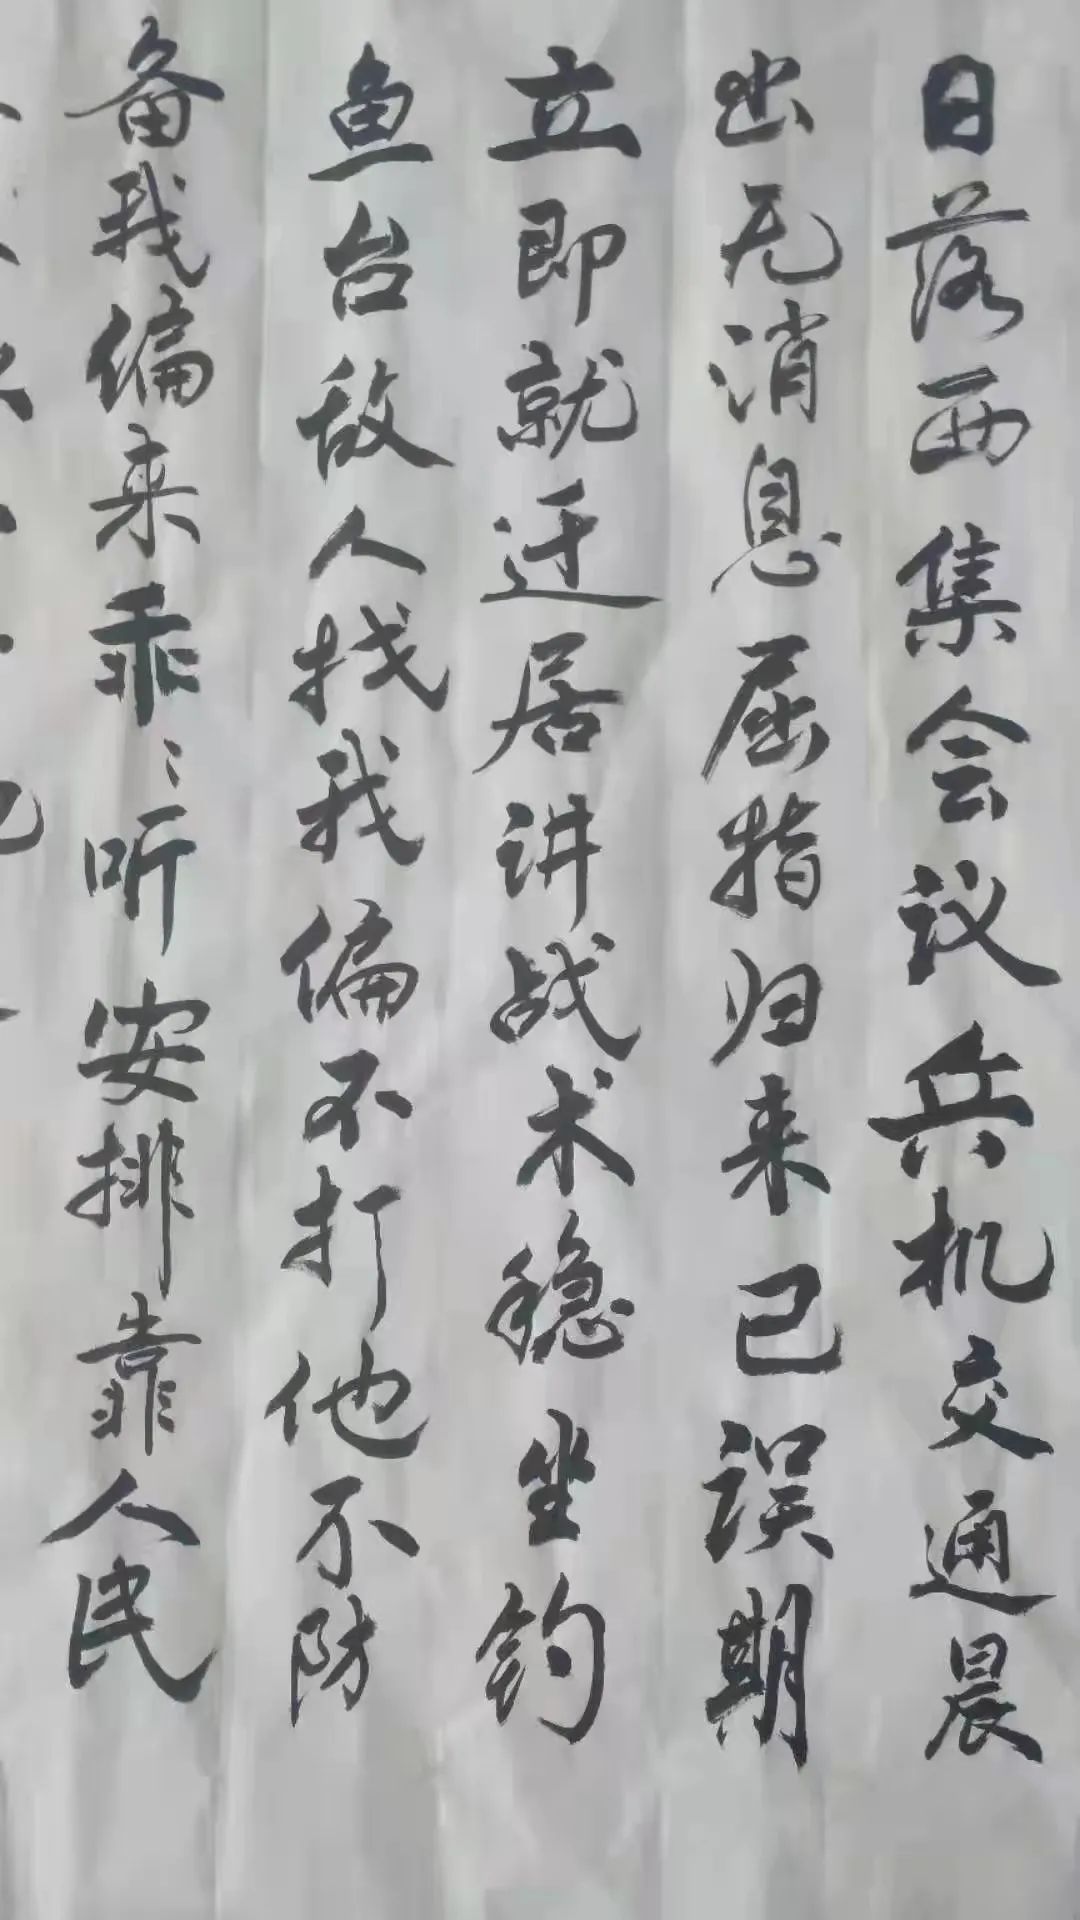 日落西集会议兵机交通晨
出无消息屈指归来已误期
立即就迁居讲战术稳坐钓
鱼台敌人找我偏不打他不防
备我偏来乖乖听安排靠人民